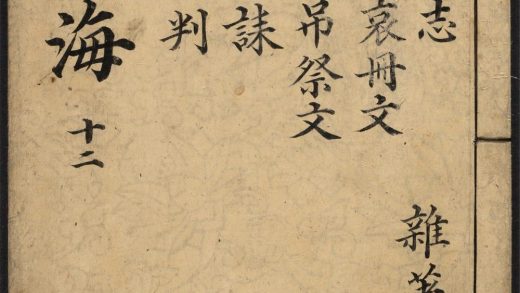 志
哀冊文
吊祭文
誄
判
雜著
海
十二